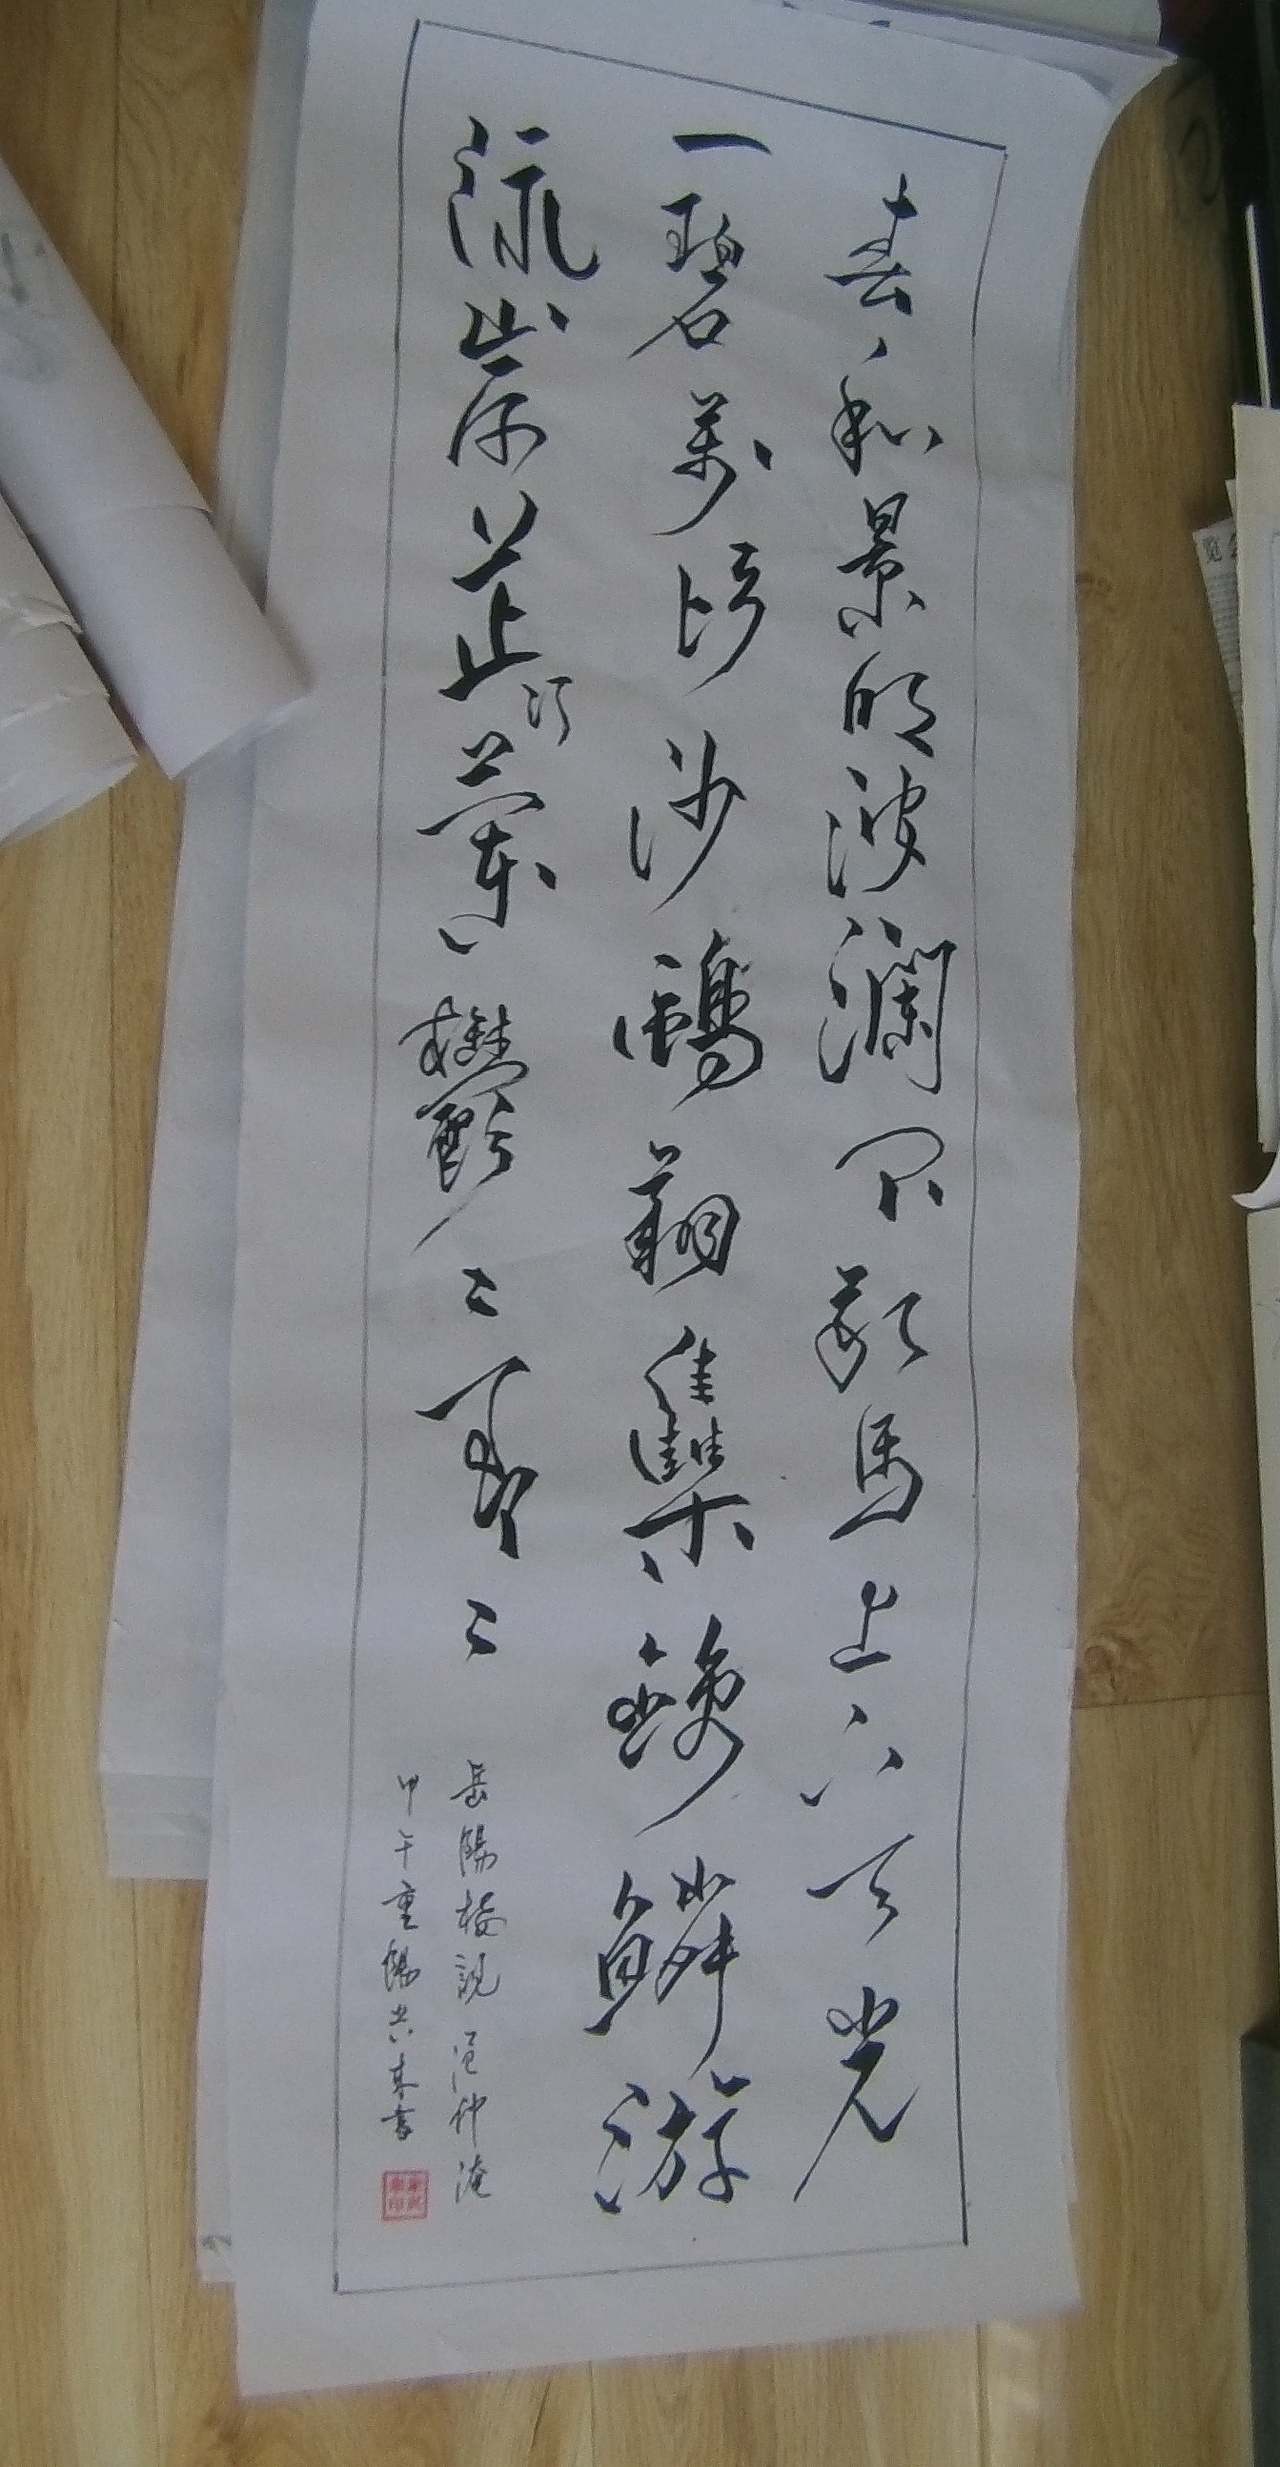 春和景明波瀾不驚上下天光
一碧萬頃沙鷗翔集錦鱗游
泳岸芷汀蘭鬱々青々
岳陽樓記 范仲淹
甲午重陽 書
览